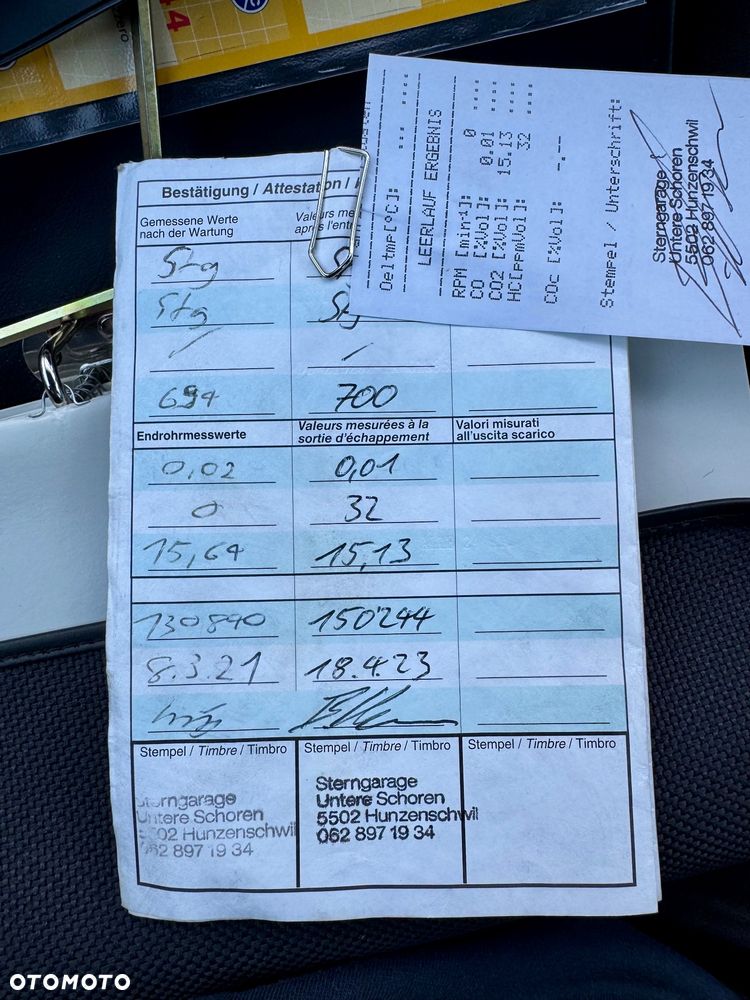 44
zero
Bestätigung / Attestation /
Gemessene Werte
nach der Wartung
Valeurs me
après l'ent
Stg
S
Stg
Stg
/
/
694
700
Endrohrmesswerte
Valeurs mesurées à la
sortie d'échappement
Valori misurati
all'uscita scarico
0,02
0,01
0
32
15,64
15,13
130840
150'244
8.3.21
18.4.23
Stempel / Timbre / Timbro
Stempel / Timbre / Timbro
Stempel / Timbre / Timbro
Sterngarage
Untere Schoren
5502 Hunzenschwil
062 897 19 34
Sterngarage
Untere Schoren
5502 Hunzenschwil
062 897 19 34
Oeltmp[°C]: --- ----
LEERLAUF ERGEBNIS
RPM [min-1]: 0 ----
CO [%Vol]: 0.01 ----
CO2 [%Vol]: 15.13 ----
HC[ppmVol]: 32 ----
COc [%Vol]: -.--
Stempel / Unterschrift:
Sterngarage
Untere Schoren
5502 Hunzenschwil
062 897 19 34
OTOMOTO